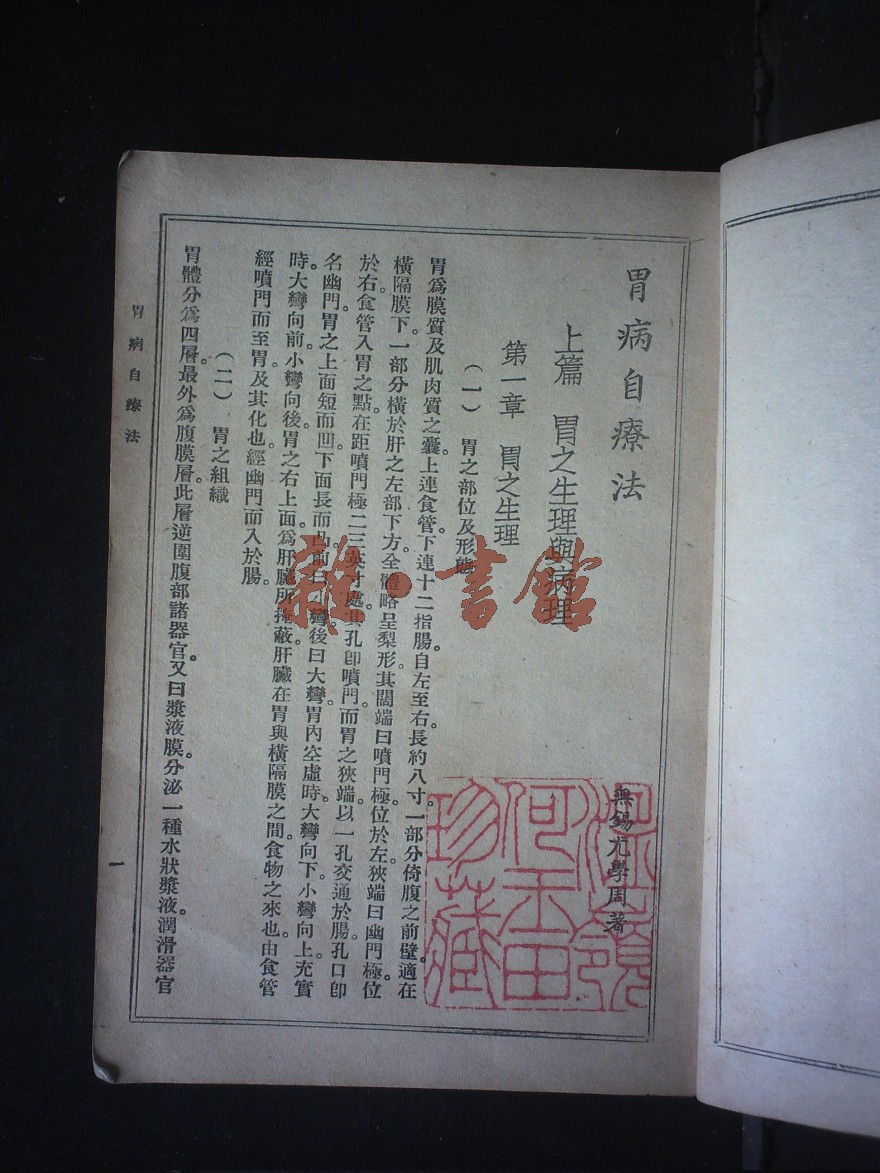 胃病自療法
無錫尤學周著
上篇 胃之生理與病理
第一章 胃之生理
(一) 胃之部位及形態
胃爲膜質及肌肉質之囊。上連食管下連十二指腸自左至右長約八寸。一部分倚腹之前壁適在
橫隔膜下。一部分橫於肝之左部下方。全體略呈梨形。其闊端曰噴門極。位於左。狹端曰幽門極。位
於右。食管入胃之點。在距噴門極二三英寸處。其孔卽噴門。而胃之狹端。以一孔交通於腸。孔口卽
名幽門。胃之上面短而凹。下面長而凸。前曰小彎。後曰大彎。胃內空虛時。大彎向下。小彎向上。充實
時。大彎向前。小彎向後。胃之右上面。爲肝臟所掩蔽。肝臟在胃與橫隔膜之間。食物之來也。由食管
經噴門而至胃。及其化也。經幽門而入於腸。
(二) 胃之組織
胃體分爲四層。最外爲腹膜層。此層逆圍腹部諸器官。又曰漿液膜。分泌一種水狀漿液。潤滑器官
胃病自療法
一
雜·書館
何玉田
珍藏